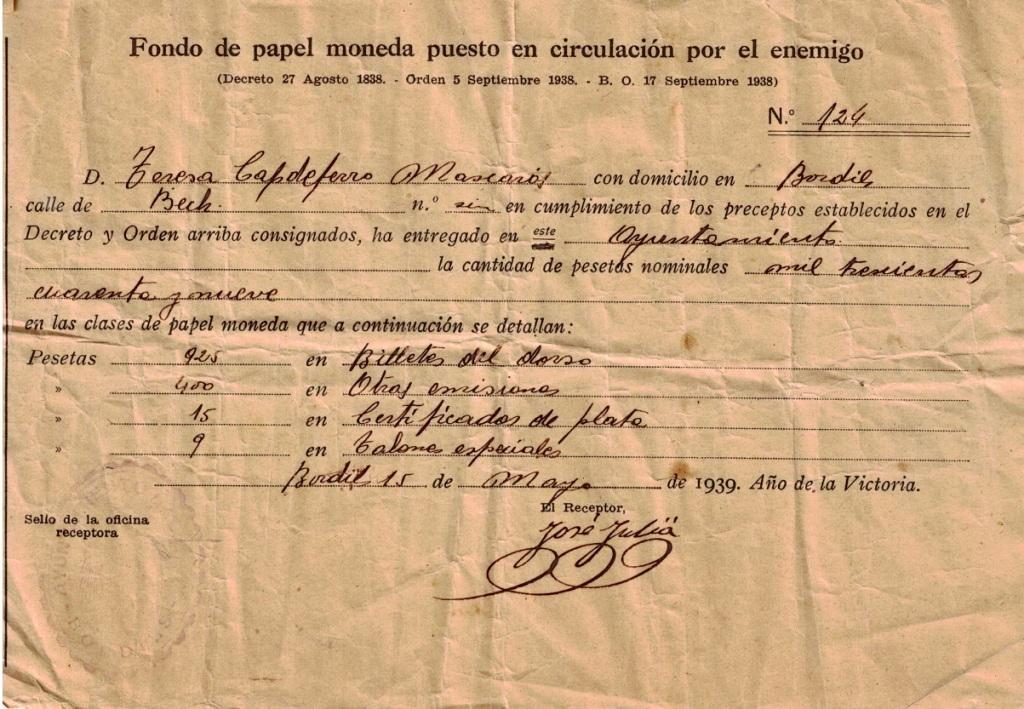 Fondo de papel moneda puesto en circulación por el enemigo
(Decreto 27 Agosto 1838. - Orden 5 Septiembre 1938. - B. O. 17 Septiembre 1938)
N.º 124
D. Teresa Capdeferro Mascarós con domicilio en Bordils
calle de Bech. n.º sin en cumplimiento de los preceptos establecidos en el
Decreto y Orden arriba consignados, ha entregado en este Ayuntamiento.
la cantidad de pesetas nominales mil trescientas
cuarenta y nueve
en las clases de papel moneda que a continuación se detallan:
Pesetas 925 en Billetes del dorso
» 400 en Otras emisiones
» 15 en Certificados de plata
» 9 en Talones especiales
Bordils 15 de Mayo de 1939. Año de la Victoria.
El Receptor,
Sello de la oficina
receptora
José Juliá